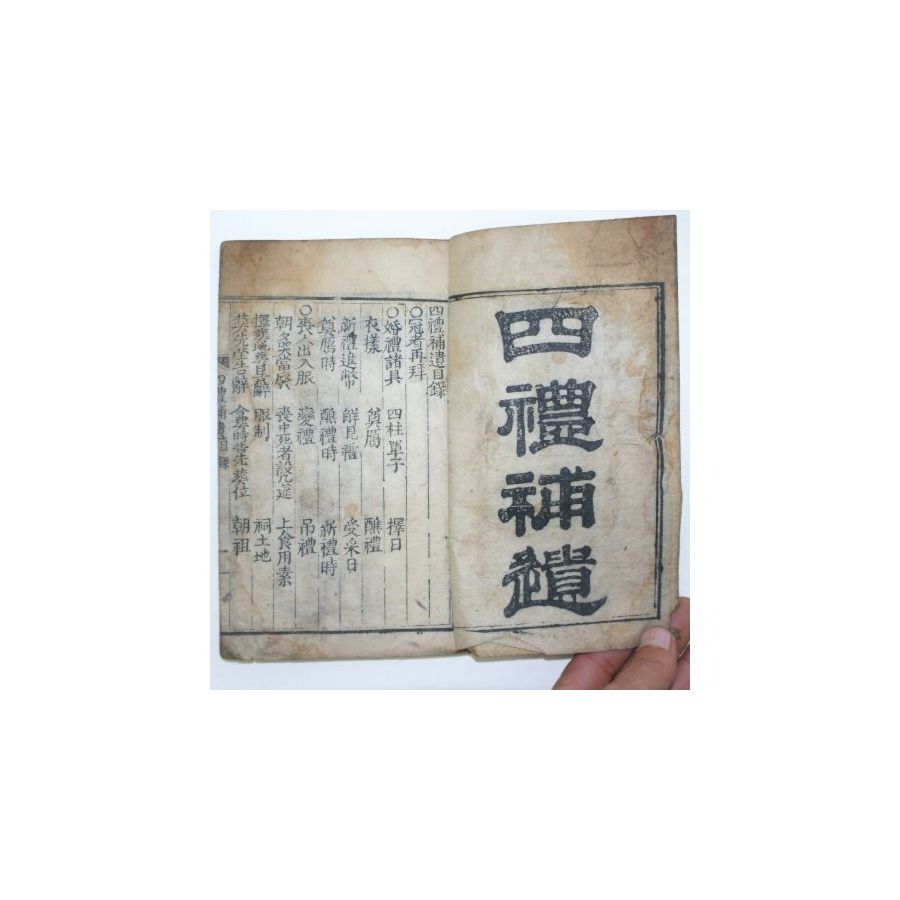 四禮補遺
四禮補遺目錄
○冠者再拜
○婚禮諸具 四柱單子 擇日
衣樣 奠鴈 醮禮
新禮進幣 受采日
奠鴈時 醮禮時 新禮時
○喪人出入服 變禮 吊禮
朝夕哭當廢 喪中死者設几筵 上食用素
服制 祠土地
合葬時告先葬位 朝祖
四禮補遺目錄